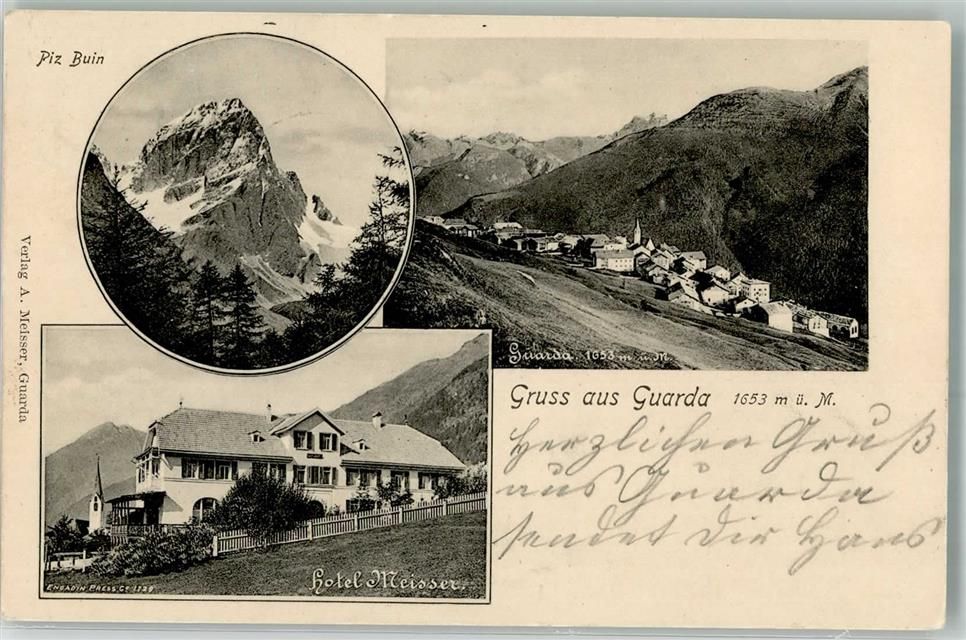 Piz Buin
Guarda. 1653 m ü. M.
Verlag A. Meisser, Guarda
Gruss aus Guarda 1653 m ü. M.
Herzlichen Gruß
aus Guarda
sendet Dir Hans
Hotel Meisser.
ENGADIN PRESS Co 1129